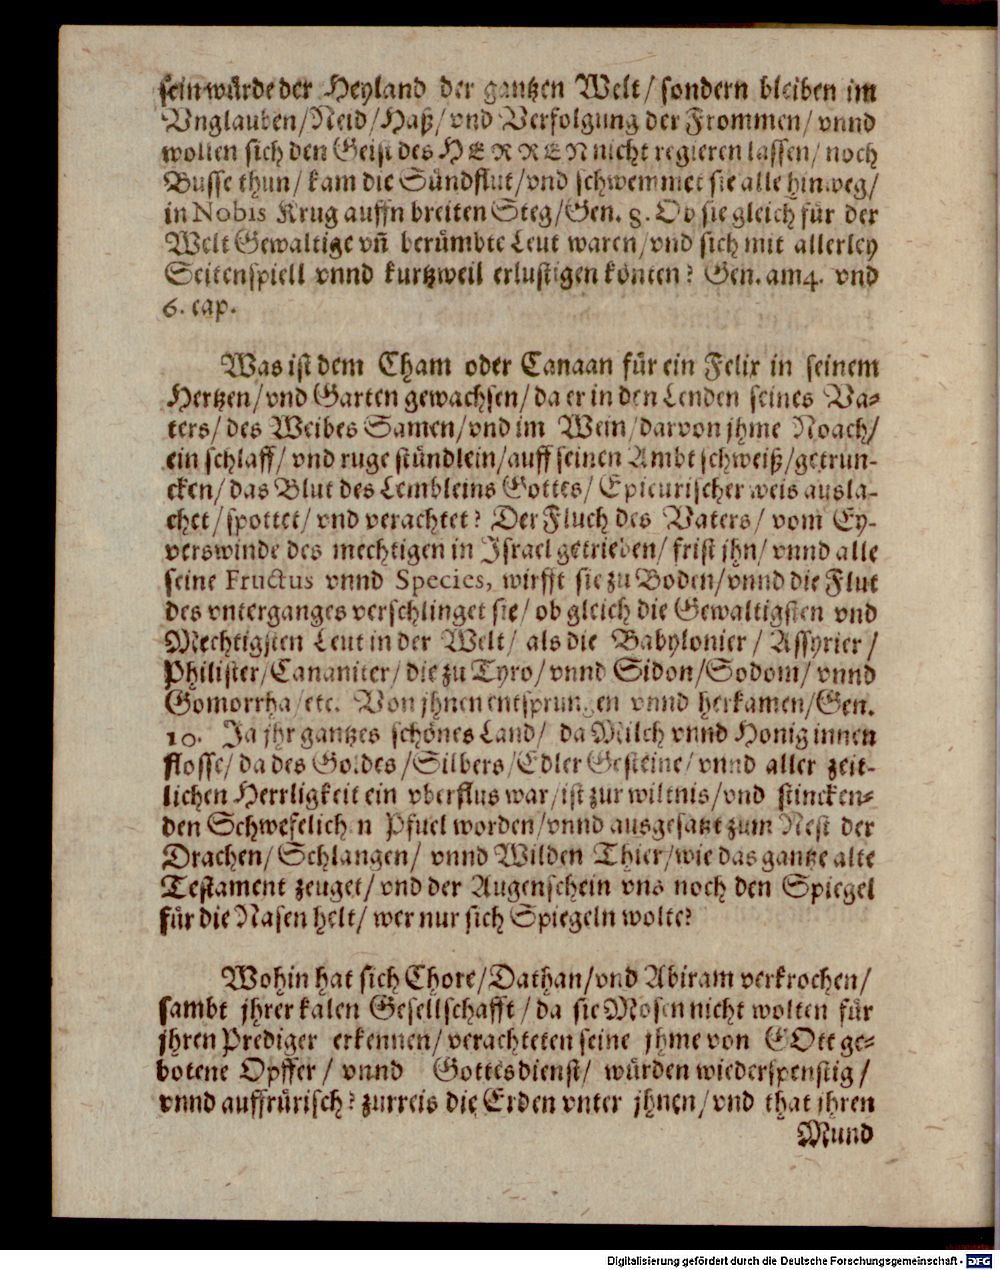 sein würde der Heyland der gantzen Welt/ sondern bleiben im
Vnglauben/Neid/Haß/vnd Verfolgung der Frommen/ vnnd
wollen sich den Geist des HERREN nicht regieren lassen/ noch
Busse thun/ kam die Sündflut/vnd schwemmet sie alle hinweg/
in Nobis Krug auffn breiten Steg/Gen. 8. Ob sie gleich für der
Welt Gewaltige vñ berümbte Leut waren/vnd sich mit allerley
Seitenspiell vnnd kurtzweil erlustigen könten? Gen. am 4. vnd
6. cap.
Was ist dem Cham oder Canaan für ein Felix in seinem
Hertzen/vnd Garten gewachsen/da er in den Lenden seines Va-
ters/des Weibes Samen/vnd im Wein/darvon jhme Noach/
ein schlaff/ vnd ruge stündlein/auff seinen Ambt schweiß/getrun-
cken/das Blut des Lembleins Gottes/ Epicurischer weis ausla-
chet/spottet/ vnd verachtet? Der Fluch des Vaters/ vom Ey-
verswinde des mechtigen in Israel getrieben/ frist jhn/ vnnd alle
seine Fructus vnnd Species, wirfft sie zu Boden/vnnd die Flut
des vnterganges verschlinget sie/ ob gleich die Gewaltigsten vnd
Mechtigsten Leut in der Welt/ als die Babylonier/ Assyrier/
Philister/Cananiter/die zu Tyro/vnnd Sidon/Sodom/ vnnd
Gomorrha/etc. Von jhnen entsprungen vnnd herkamen/Gen.
10. Ja jhr gantzes schönes Land/ da Milch vnnd Honig innen
flosse/da des Goldes/Silbers/Edler Gesteine/vnnd aller zeit-
lichen Herrligkeit ein vberflus war/ist zur wiltnis/vnd stincken-
den Schwefelichen Pfuel worden/vnnd ausgesatzt zum Nest der
Drachen/Schlangen/ vnnd Wilden Thier/wie das gantze alte
Testament zeuget/vnd der Augenschein vns noch den Spiegel
für die Nasen helt/ wer nur sich Spiegeln wolte?
Wohin hat sich Chore/Dathan/vnd Abiram verkrochen/
sambt jhrer kalen Gesellschafft/da sie Mosen nicht wolten für
jhren Prediger erkennen/verachteten seine jhme von GOtt ge-
botene Opffer/ vnnd Gottesdienst/ würden wiederspenstig/
vnnd auffrürisch? zurreis die Erden vnter jhnen/vnd that jhren
Mund
Digitalisierung gefördert durch die Deutsche Forschungsgemeinschaft - DFG